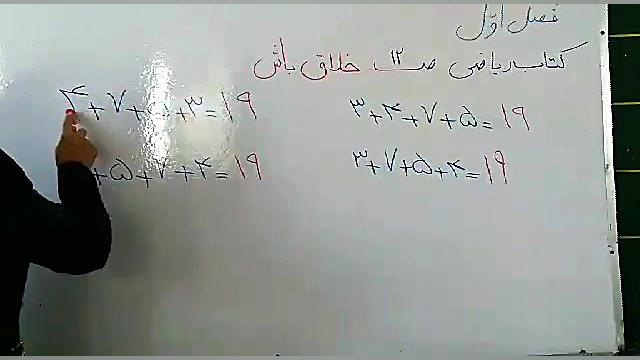 فصل اوّل
کتاب ریاضی ص ۱۲ خلاق باش
۴+۷+۵+۳=۱۹
۳+۴+۷+۵=۱۹
+۵+۷+۴=۱۹
۳+۷+۵+۴=۱۹